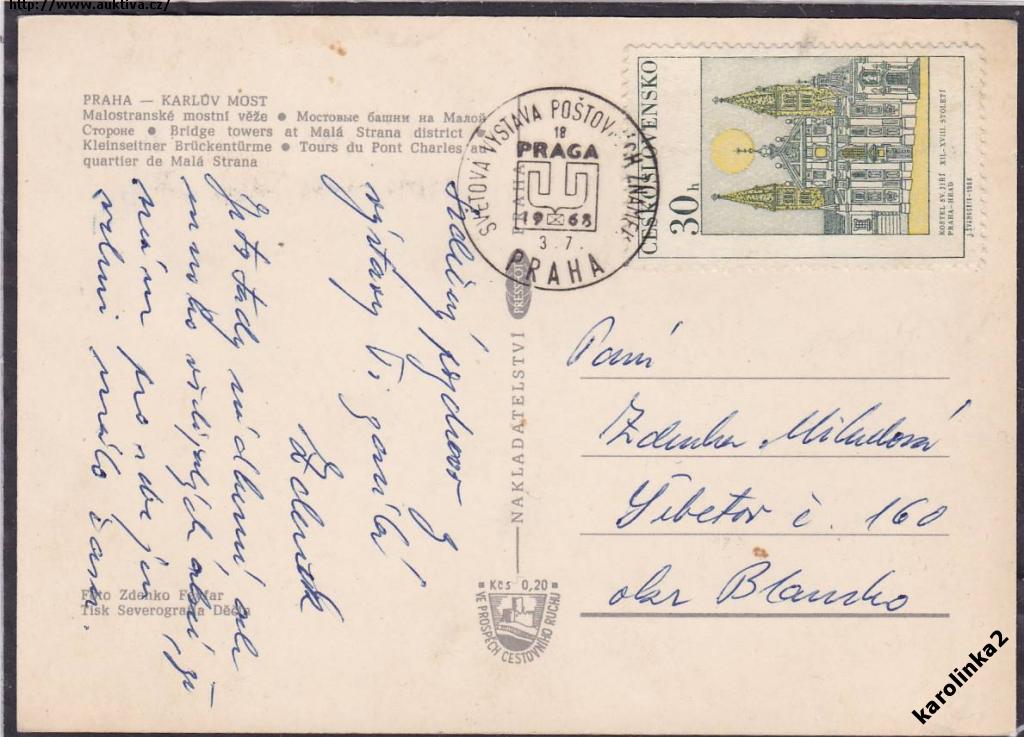 http://www.auktiva.cz/
PRAHA — KARLŮV MOST
Malostranské mostní věže ● Мостовые башни на Малой
Стороне ● Bridge towers at Malá Strana district ●
Kleinseitner Brückentürme ● Tours du Pont Charles au
quartier de Malá Strana
SVĚTOVÁ VÝSTAVA POŠTOVNÍCH ZNÁMEK
18
PRAGA
PRAHA
1968
3.7.
PRAHA
ČESKOSLOVENSKO
30 h
KOSTEL SV. JIŘÍ XII.-XVIII. STOLETÍ
PRAHA-HRAD
J. ŠVENGSBÍR-1968
Srdečný pozdrav z
výstavy Ti zasílá
Zdeněk
Je to tady nádherné ale
mnoho věcí
mám pro
velmi málo času.
NAKLADATELSTVÍ PRESSFOTO
Paní
Zdenka Mikulová
Šebetov č. 160
okr Blansko
Foto Zdenko Feyfar
Tisk Severografia Děčín
Kčs 0,20
VE PROSPĚCH CESTOVNÍHO RUCHU
karolinka2